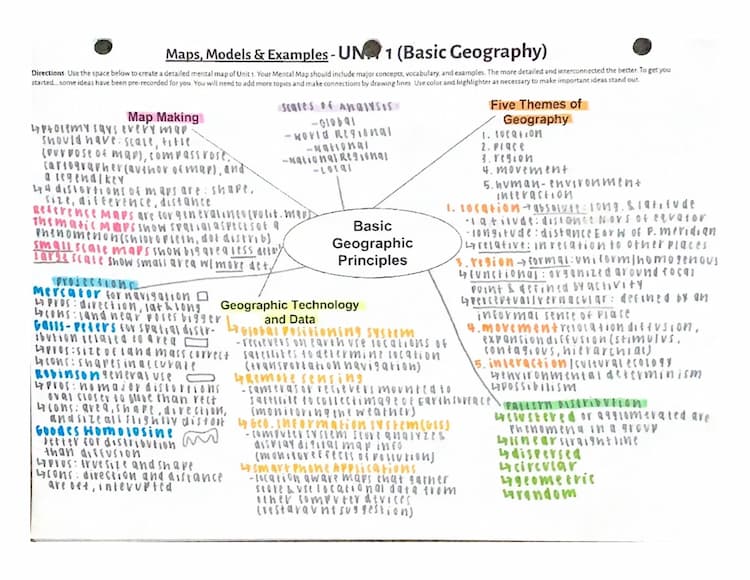 Maps, Models & Examples - UNIT 1 (Basic Geography)
Directions: Use the space below to create a detailed mental map of Unit 1. Your Mental Map should include major concepts, vocabulary, and examples. The more detailed and interconnected the better. To get
started... some ideas have been pre-recorded for you. You will need to add more topics and make connections by drawing lines. Use color and highlighter as necessary to make important ideas stand out.
Map Making
↳ptolemy says every map
should have: scale, title
(purpose of map), compass rose,
cartographer (author of map), and
a legend/key
↳4 distortions of maps are: shape,
size, difference, distance
Reference maps are for general info (polit. map)
Thematic maps show spatial aspects of a
phenomenon (choropleth, dot distrib)
small scale maps show big area less det.
large scale show small area w/ more det.
Scales of Analysis
-Global
-World Regional
-National
-National Regional
-Local
Five Themes of
Geography
1. location
2. place
3. region
4. movement
5. human-environment
interaction
1. location → absolute: long. & latitude
-latitude: distance N or S of equator
-longitude: distance E or W of P. meridian
↳relative: in relation to other places
3. region → formal: uniform/homogenous
↳functional: organized around focal
point & defined by activity
↳perceptual/vernacular: defined by an
informal sense of place
4. movement relocation diffusion,
expansion diffusion (stimulus,
contagious, hierarchial)
5. interaction/cultural ecology
↳environmental determinism
↳possibilism
Basic
Geographic
Principles
projections
Mercator for navigation
↳pros: direction, lat & long
↳cons: land near poles bigger
Galls-Peters for spatial distr-
bution related to area
↳pros: size of land mass correct
↳cons: shapes inaccurate
Robinson general use
↳pros: no major distortions
oval closer to globe than rect
↳cons: area, shape, direction,
and size all slightly distort
Goodes Homolosine
better for distribution
than diffusion
↳pros: true size and shape
↳cons: direction and distance
are def, interupted
Geographic Technology
and Data
↳Global Positioning System
-recievers on earth use locations of
satellites to determine location
(transportation navigation)
↳Remote sensing
-camera or recievers mounted to
satellite to collect image of earth surface
(monitoring the weather)
↳Geo. Information System (GIS)
-computer system store analyze &
display digital map info
(monitor effects of pollution)
↳smart phone applications
-location aware maps that gather
store & use locational data from
other computer devices
(restaraunt suggestion)
Pattern Distribution
↳clustered or agglomerated are
phenomena in a group
↳linear straight line
↳dispersed
↳circular
↳geometric
↳random